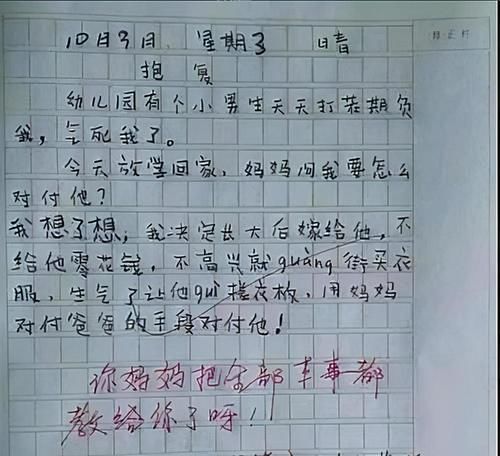 10月9日 星期3 晴
抱复
幼儿园有个小男生天天打茬期负
我,气死我了。
今天放学回家,妈妈问我要怎么
对付他?
我想了想,我决定长大后嫁给他,不
给他零花钱,不高兴就guàng街买衣
服,生气了让他guì搓衣板,用妈妈
对付爸爸的手段对付他!
你妈妈把全部本事都
教给你了呀!